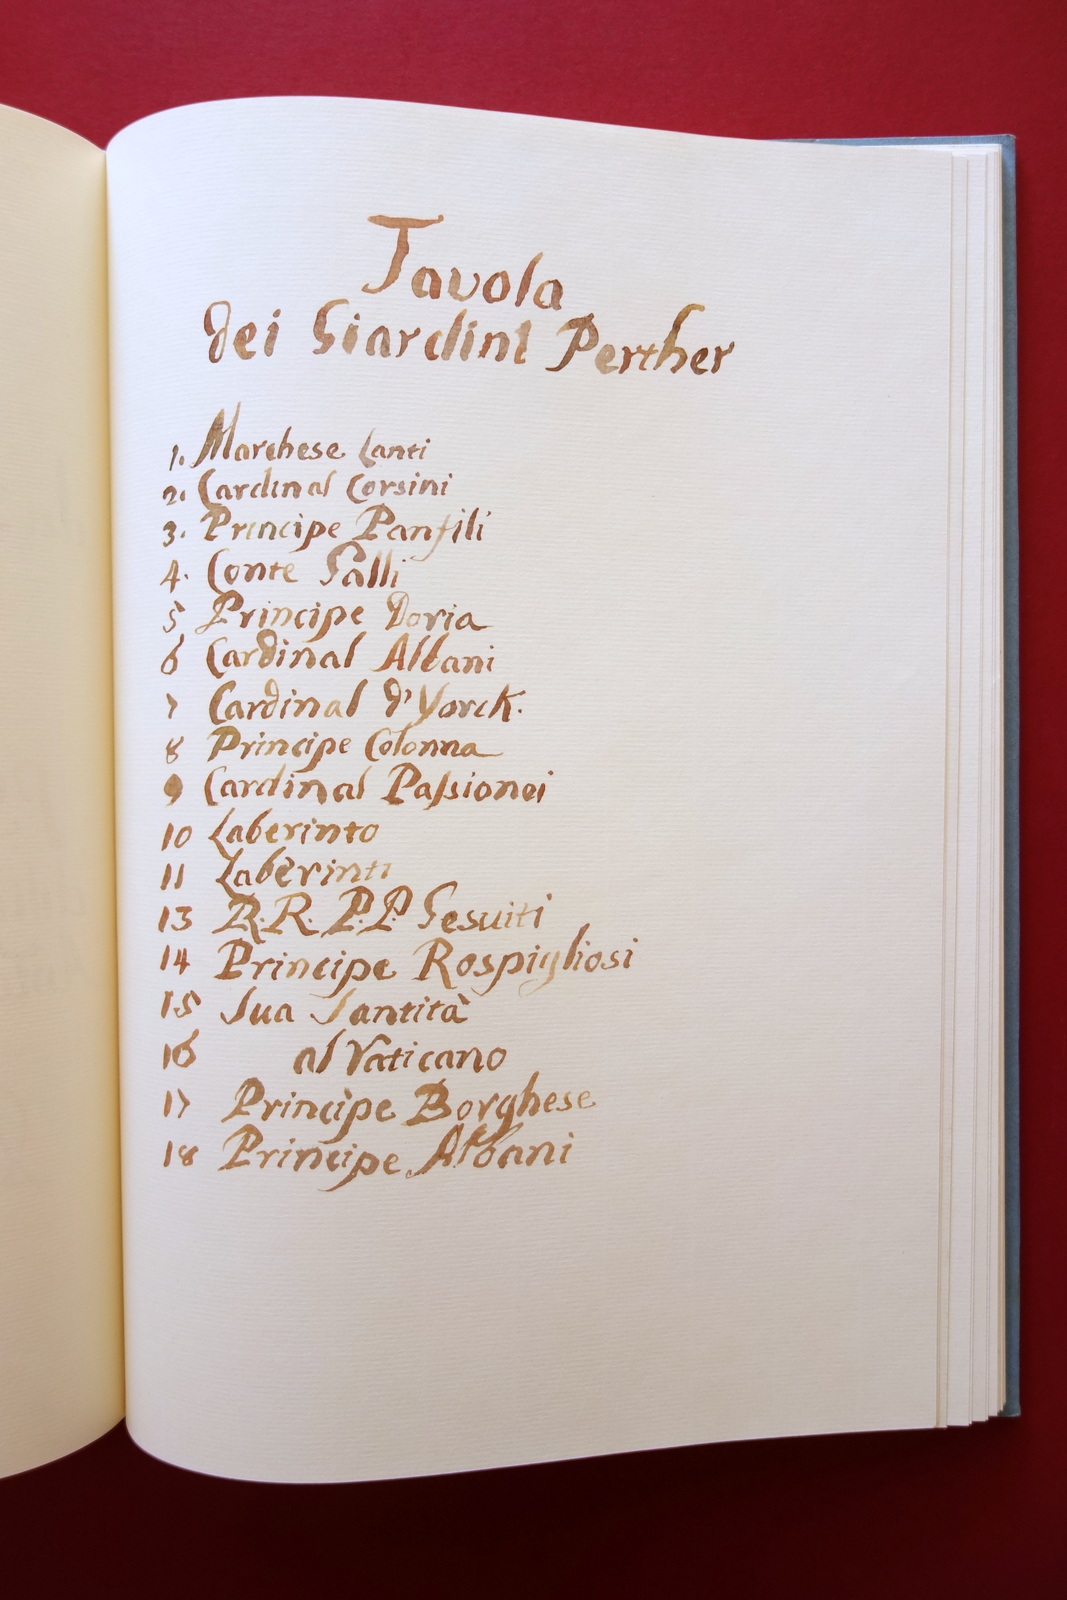 Tavola
dei Giardini Perther
1. Marchese Lanti
2. Cardinal Corsini
3. Principe Panfili
4. Conte Galli
5 Principe Doria
6 Cardinal Albani
7 Cardinal d'Yorck.
8 Principe Colonna
9 Cardinal Paſsionei
10 Laberinto
11 Laberinti
13 R.R. P.P. Gesuiti
14 Principe Rospigliosi
15 Sua Santità
16 al Vaticano
17 Principe Borghese
18 Principe Albani